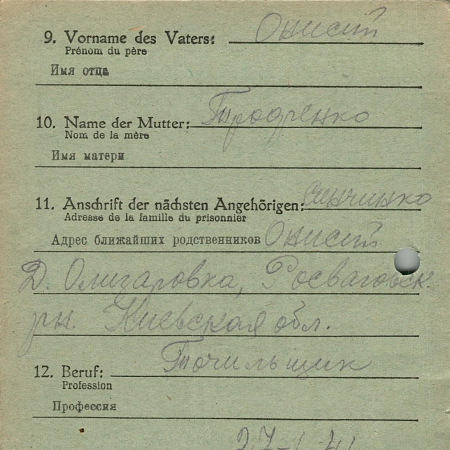 9. Vorname des Vaters: Онисий
Prénom du père
Имя отца
10. Name der Mutter:
Nom de la mère
Имя матери
11. Anschrift der nächsten Angehörigen:
Adresse de la famille du prisonnier
Адрес ближайших родственников Онисий
Д. Олигаровка,
рн. Киевская обл.
12. Beruf: Точильщик
Profession
Профессия